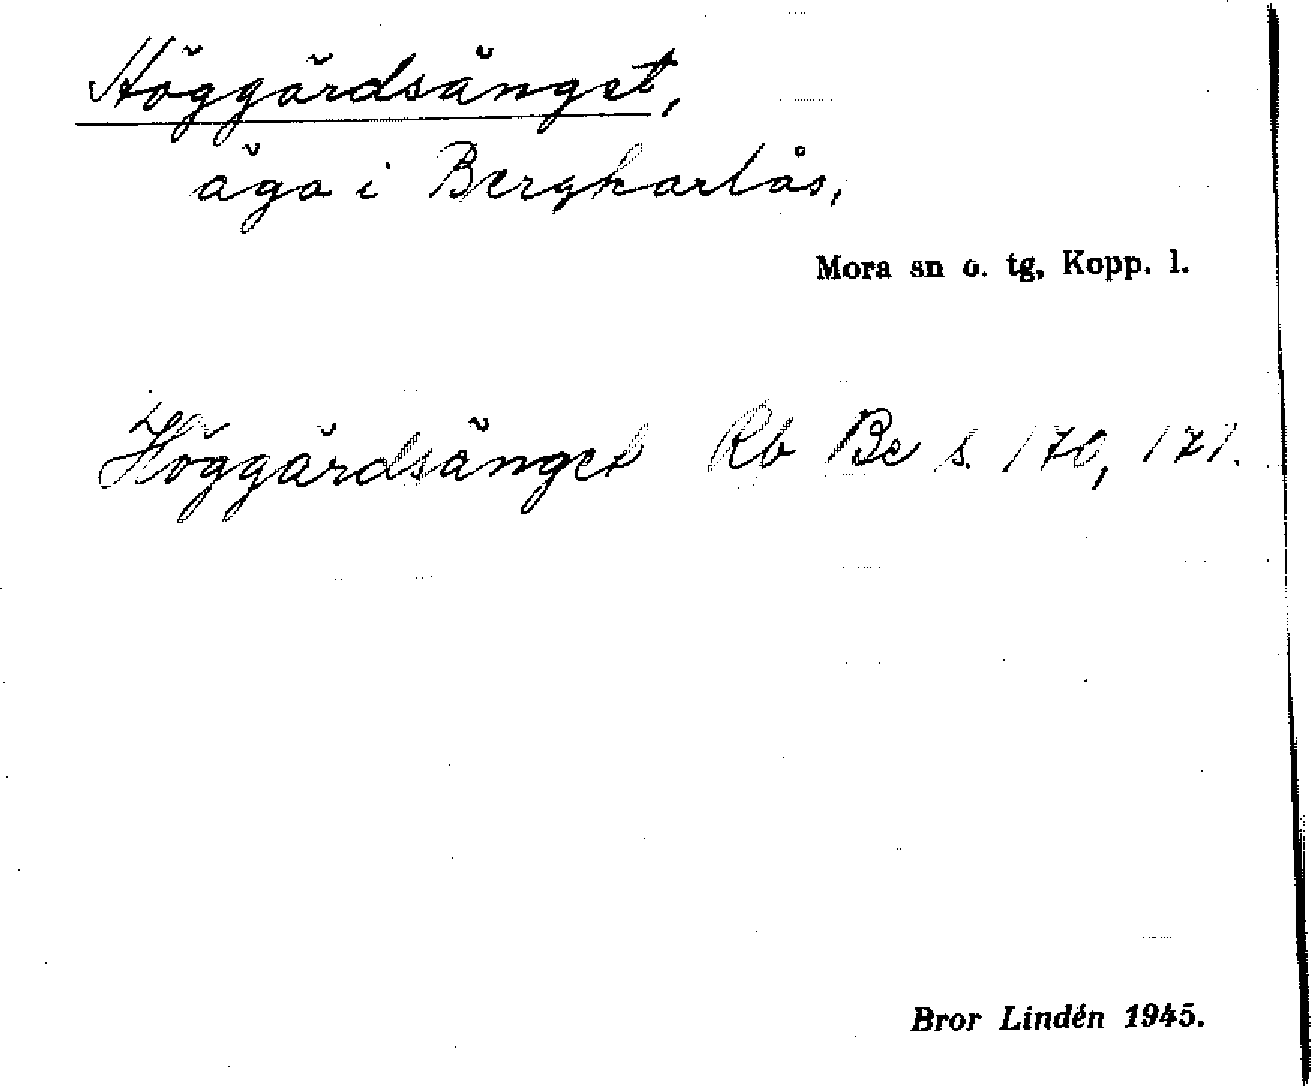 Höggärdsänget,
äga i Bergkarlås,
Mora sn o. tg, Kopp. l.
Höggärdsänget Rb Be s. 170, 171.
Bror Lindén 1945.